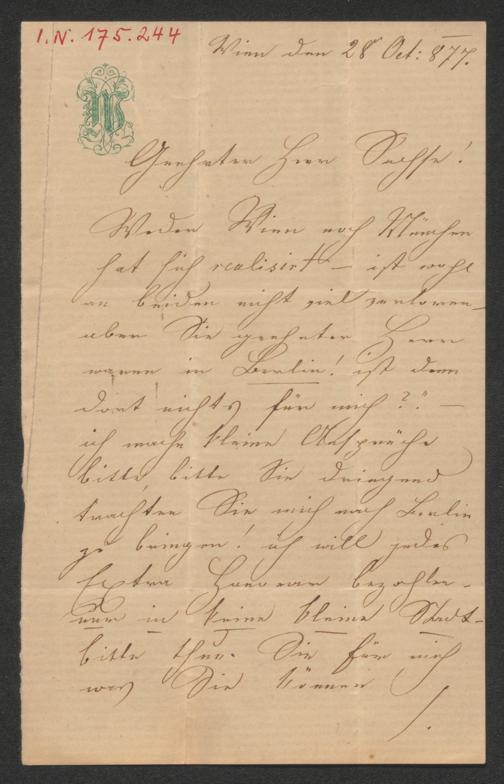 I.N. 175.244
Wien den 28 Oct: 877.
Geehrter Herr Sachse!
Weder Wien noch München
hat sich realisirt – ist wohl
an beiden nicht viel verloren –
aber Sie geehrter Herr
waren in Berlin! ist denn
dort nichts für mich?" –
ich mache kleine Ansprüche
bitte, bitte Sie dringend
trachten Sie mich nach Berlin
zu bringen! ich will jedes
Extra Honorar bezahlen –
nur in keine kleine Stadt –
bitte thun Sie für mich
was Sie können
/.